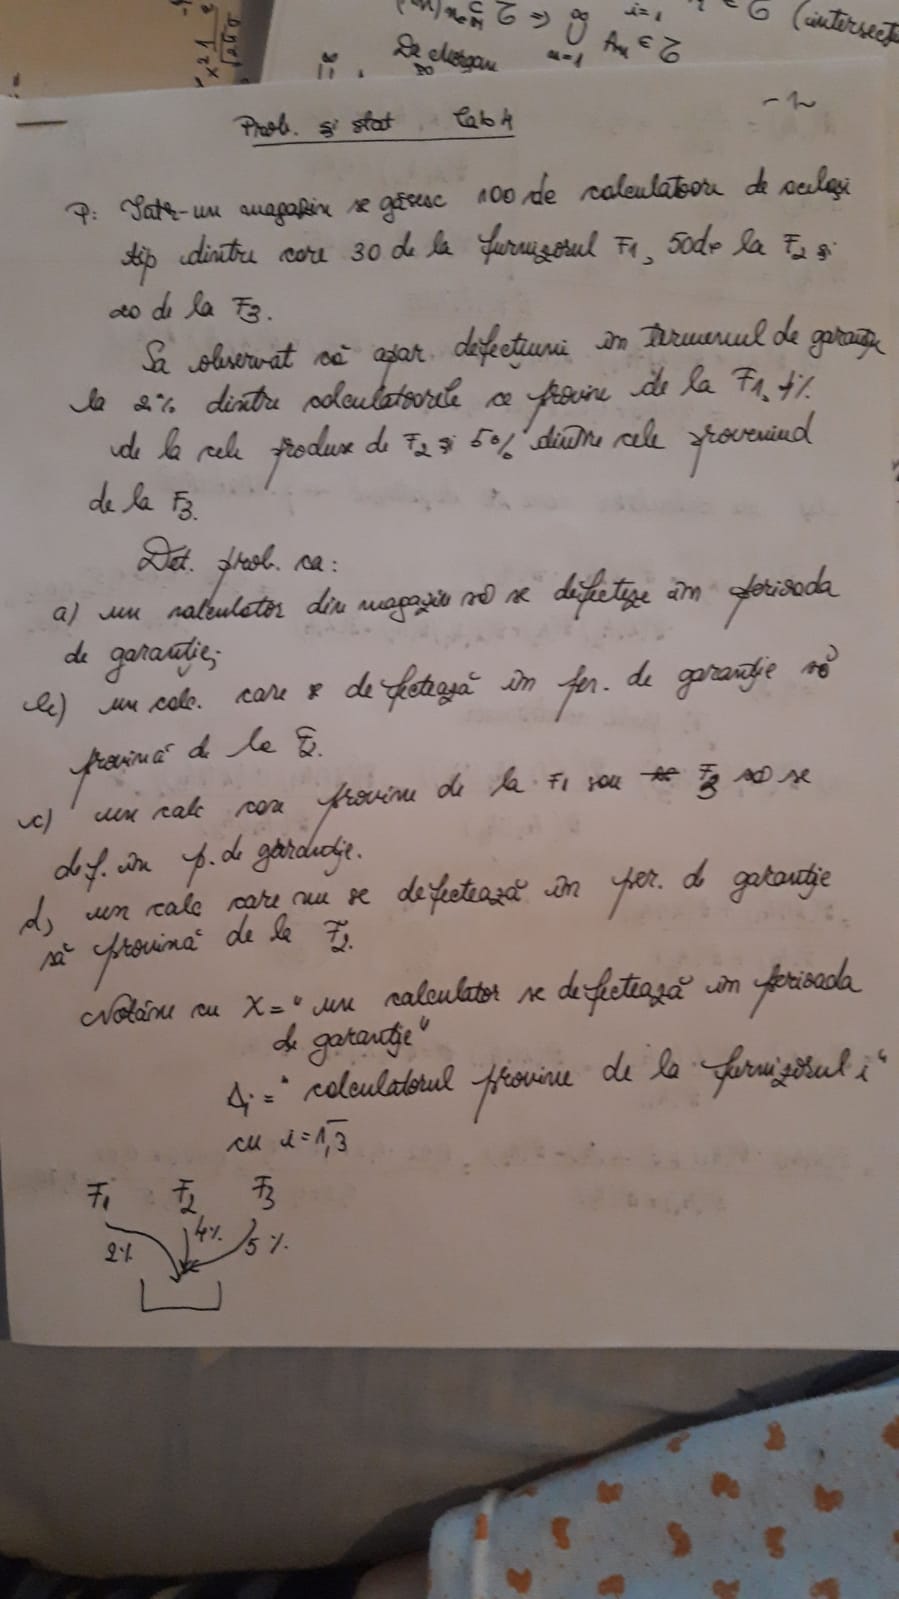 i=1
∈ Z (intersect
Z (=> ∪ An ∈ Z
De Morgan n=1
Prob. și stat Lab 4
P: Într-un magazin se găsesc 100 de calculatoare de același
tip dintre care 30 de la furnizorul F1, 50 de la F2 și
20 de la F3.
Sa observat că apar defecțiuni în termenul de garanție
la 2% dintre calculatoarele ce provine de la F1, 4%
de la cele produse de F2 și 5% dintre cele provenind
de la F3.
Det. prob. ca:
a) un calculator din magazin să se defecteze în perioada
de garanție;
b) un calc. care se defectează în per. de garanție să
provină de la F2.
c) un calc care provine de la F1 sau F3 să se
def. în p. de garanție.
d) un calc care nu se defectează în per. de garanție
să provină de la F2.
Notăm cu X = "un calculator se defectează în perioada
de garanție"
Ai = "calculatorul provine de la furnizorul i"
cu i=1,3
F1 F2 F3
2% 4% 5%